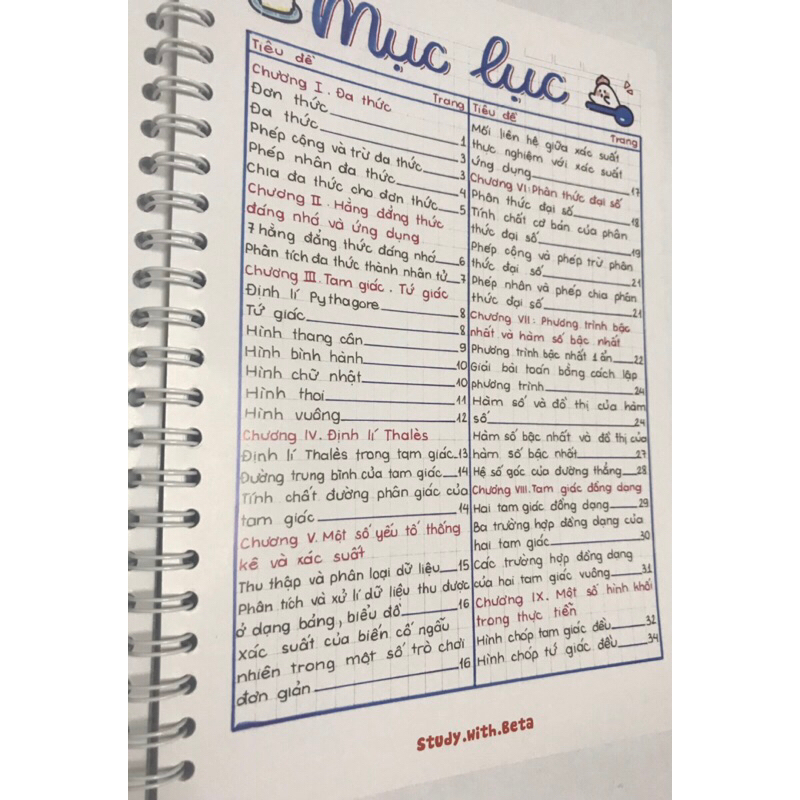 Mục lục
Tiêu đề Trang
Chương I. Đa thức
Đơn thức 1
Đa thức 3
Phép cộng và trừ đa thức 3
Phép nhân đa thức 4
Chia đa thức cho đơn thức 5
Chương II. Hằng đẳng thức
đáng nhớ và ứng dụng
7 hằng đẳng thức đáng nhớ 6
Phân tích đa thức thành nhân tử 7
Chương III. Tam giác. Tứ giác
Định lí Pythagore 8
Tứ giác 8
Hình thang cân 9
Hình bình hành 10
Hình chữ nhật 10
Hình thoi 11
Hình vuông 12
Chương IV. Định lí Thalès
Định lí Thalès trong tam giác 13
Đường trung bình của tam giác 14
Tính chất đường phân giác của
tam giác 14
Chương V. Một số yếu tố thống
kê và xác suất
Thu thập và phân loại dữ liệu 15
Phân tích và xử lí dữ liệu thu được
ở dạng bảng, biểu đồ 16
Xác suất của biến cố ngẫu
nhiên trong một số trò chơi
đơn giản 16
Tiêu đề Trang
Mối liên hệ giữa xác suất
thực nghiệm với xác suất
ứng dụng 17
Chương VI: Phân thức đại số
Phân thức đại số 18
Tính chất cơ bản của phân
thức đại số 19
Phép cộng và phép trừ phân
thức đại số 21
Phép nhân và phép chia phân
thức đại số 21
Chương VII: Phương trình bậc
nhất và hàm số bậc nhất
Phương trình bậc nhất 1 ẩn 22
Giải bài toán bằng cách lập
phương trình 24
Hàm số và đồ thị của hàm
số 24
Hàm số bậc nhất và đồ thị của
hàm số bậc nhất 27
Hệ số góc của đường thẳng 28
Chương VIII. Tam giác đồng dạng
Hai tam giác đồng dạng 29
Ba trường hợp đồng dạng của
hai tam giác 30
Các trường hợp đồng dạng
của hai tam giác vuông 31
Chương IX. Một số hình khối
trong thực tiễn
Hình chóp tam giác đều 32
Hình chóp tứ giác đều 34
Study.With.Beta